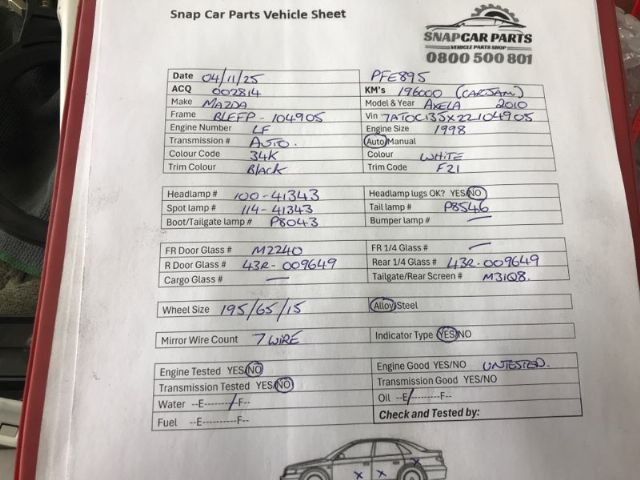 Snap Car Parts Vehicle Sheet
SNAPCAR PARTS
VEHICLE PARTS SHOP
0800 500 801
Date 04/11/25 PFE895
ACQ 002814 KM's 196000 (CARJAM)
Make MAZDA Model & Year AXELA 2010
Frame BLEFP-104905 Vin 7AT0C13JX22104905
Engine Number LF Engine Size 1998
Transmission # AUTO. Auto/Manual
Colour Code 34K Colour WHITE
Trim Colour BLACK Trim Code F21
Headlamp # 100-41343 Headlamp lugs OK? YES/NO
Spot lamp # 114-41343 Tail lamp # P8546
Boot/Tailgate lamp # P8043 Bumper lamp # —
FR Door Glass # M2240 FR 1/4 Glass # —
R Door Glass # 43R-009649 Rear 1/4 Glass # 43R-009649
Cargo Glass # — Tailgate/Rear Screen # M31Q8.
Wheel Size 195/65/15 Alloy/Steel
Mirror Wire Count 7 WIRE Indicator Type YES/NO
Engine Tested YES/NO Engine Good YES/NO UNTESTED.
Transmission Tested YES/NO Transmission Good YES/NO
Water --E---------/-F-- Oil --E/---------F--
Fuel --E----------F-- Check and Tested by:
x x x